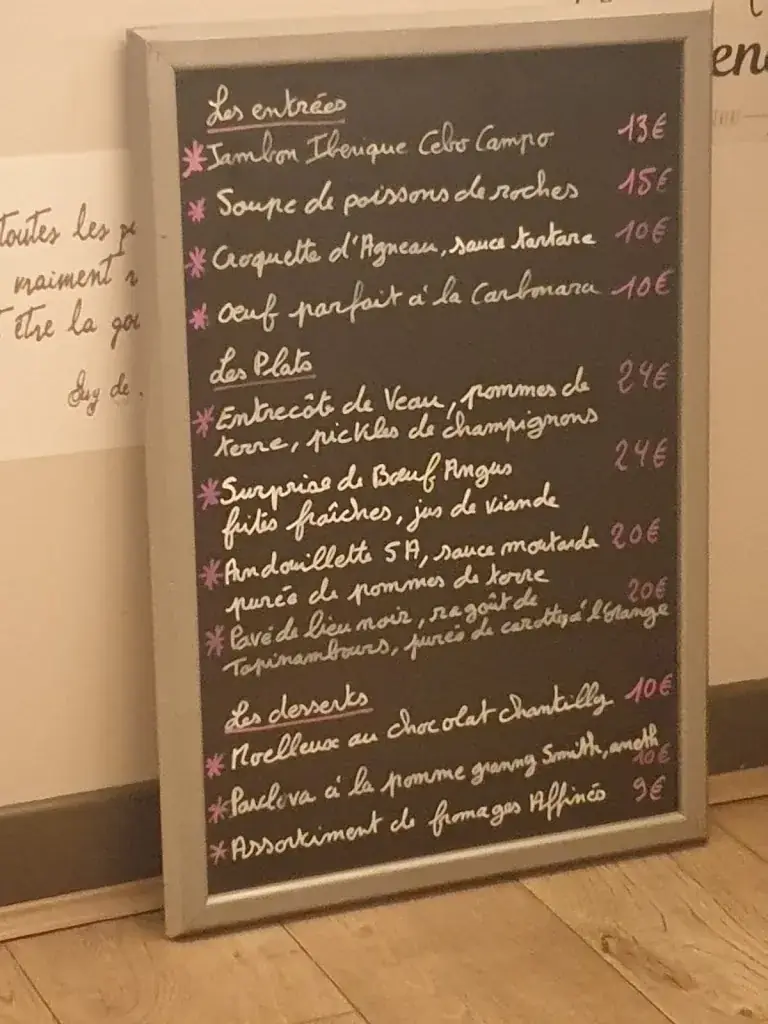 Les entrées
* Jambon Iberique Cebo Campo 13€
* Soupe de poissons de roches 15€
* Croquette d'Agneau, sauce tartare 10€
* Oeuf parfait à la Carbonara 10€
Les Plats
* Entrecôte de Veau, pommes de 24€
terre, pickles de champignons
* Surprise de Bœuf Angus 24€
frites fraîches, jus de viande
* Andouillette 5A, sauce moutarde 20€
purée de pommes de terre
* Pavé de lieu noir, ragoût de 20€
Topinambours, purée de carottes à l'Orange
Les desserts
* Moelleux au chocolat chantilly 10€
* Pavlova à la pomme granny Smith, aneth 10€
* Assortiment de fromages Affinés 9€
toutes les
vraiment
être la
Guy de